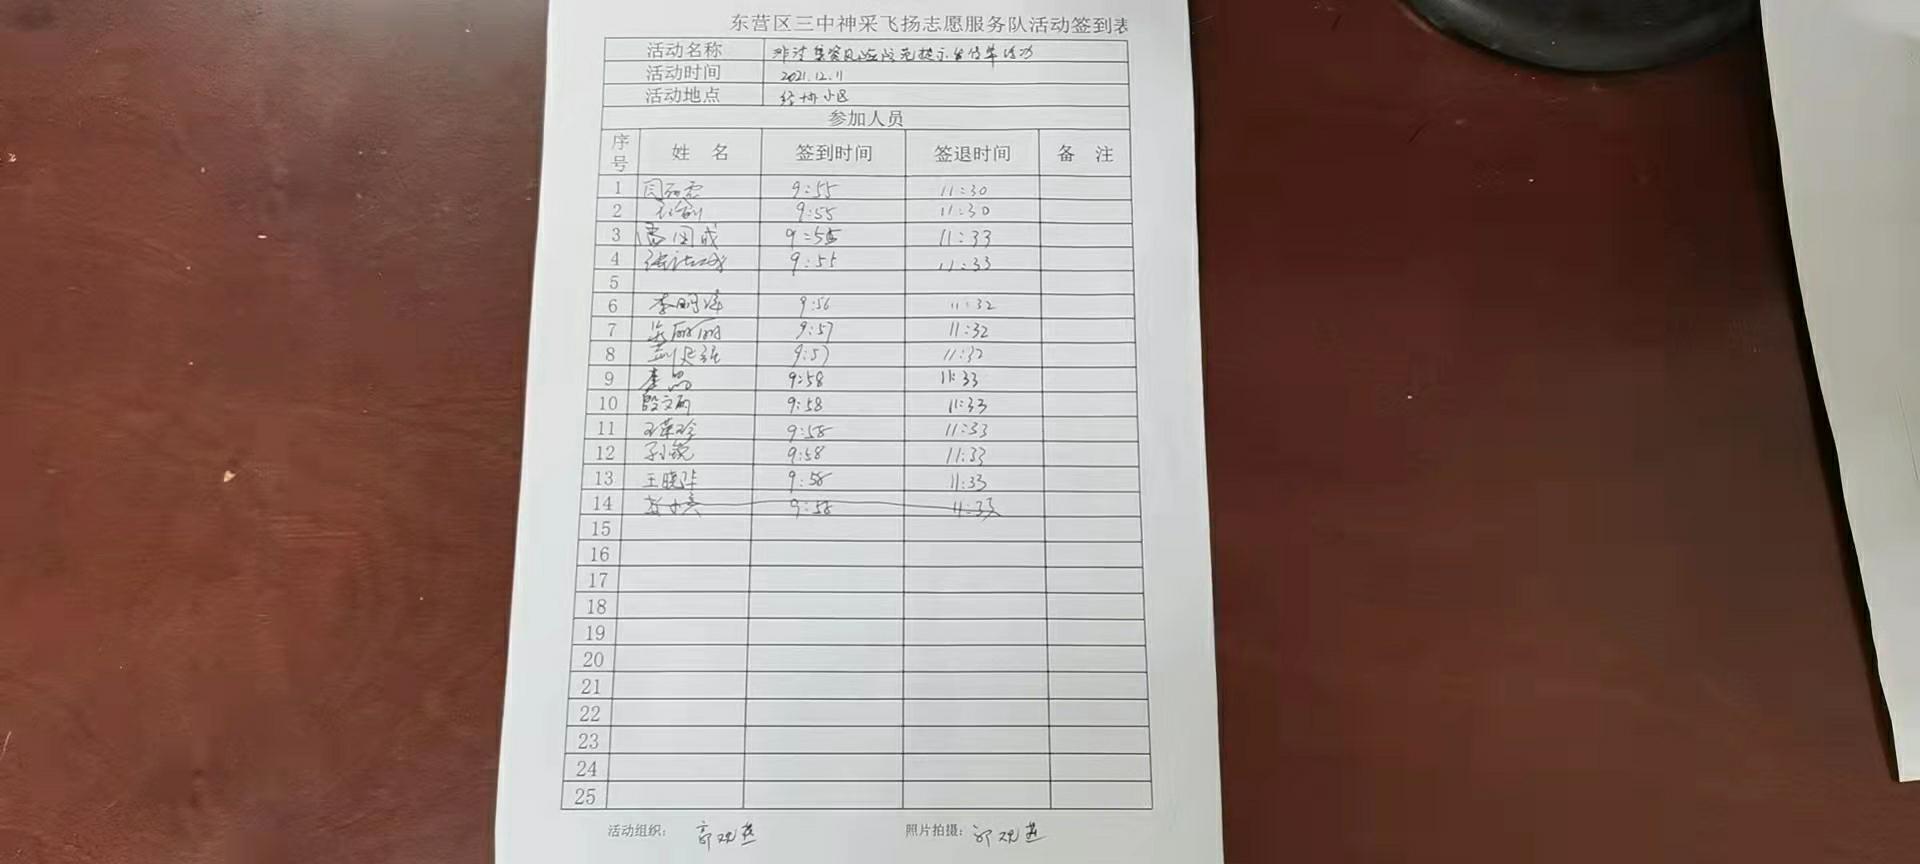 东营区三中神采飞扬志愿服务队活动签到表
活动名称 非法集资风险防范提示宣传单活动
活动时间 2021.12.11
活动地点 小区
参加人员
序号 姓 名 签到时间 签退时间 备 注
1 9:55 11:30
2 9:55 11:30
3 9:55 11:33
4 9:55 11:33
5
6 李明 9:56 11:32
7 丽丽 9:57 11:32
8 9:57 11:32
9 李晶 9:58 11:33
10 殷文丽 9:58 11:33
11 9:58 11:33
12 孙锐 9:58 11:33
13 王晓华 9:58 11:33
14 9:58 11:33
15
16
17
18
19
20
21
22
23
24
25
活动组织： 照片拍摄：